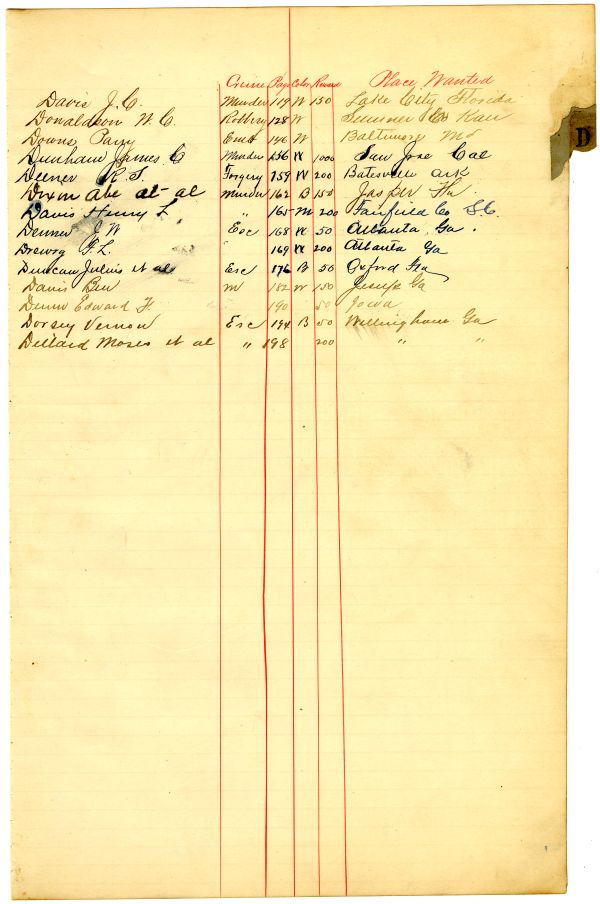 Crime Page Color Reward Place Wanted
Davis J. C. Murder 119 W 150 Lake City Florida
Donaldson W. C. Robbery 128 W Sumner Co Kan
D
Downs Parry Emb 146 W Baltimore Md
Dunham James C Murder 156 W 1000 San Jose Cal
Deener R. T. Forgery 159 W 200 Batesville Ark
Dixon Abe et al Murder 162 B 150 Jasper Fla
Davis Henry L " 165 M 200 Fairfield Co S.C.
Denner J. W Esc 168 W 50 Atlanta, Ga.
Drewry G. L. " 169 W 200 Atlanta Ga
Duncan Julius et als Esc 176 B 50 Oxford Ga
Davis Ben M 182 W 150 Jesup Ga
Edward F. 190 50 Iowa
Dorsey Vernon Esc 194 B 50 Willingham Ga
Dillard Moses et al " 198 200 " "